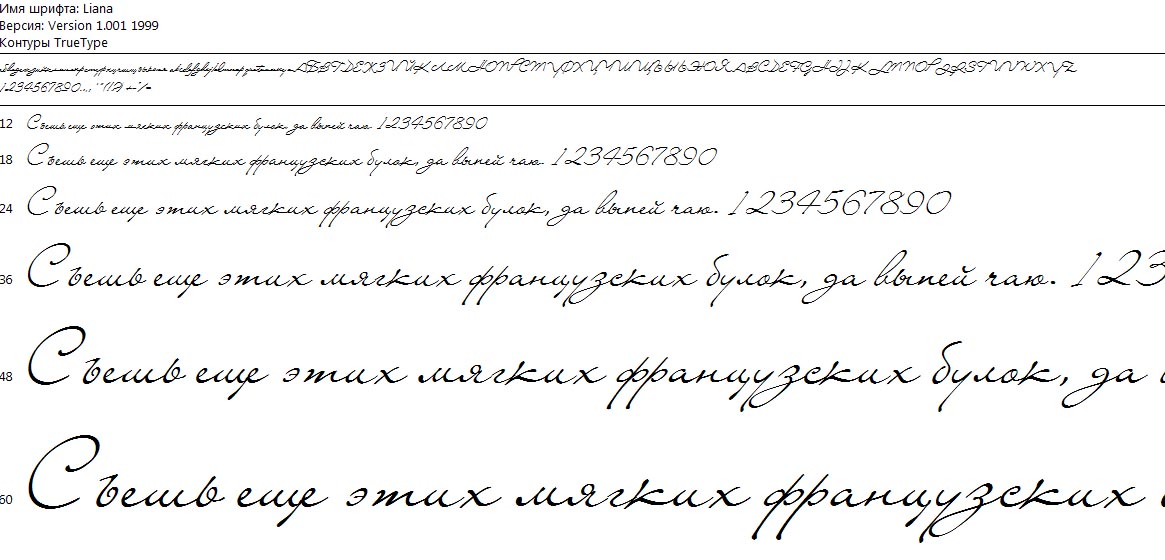 Имя шрифта: Liana
Версия: Version 1.001 1999
Контуры TrueType
АБВГДЕЖЗИЙКЛМНОПРСТУФХЦЧШЩЪЫЬЭЮЯ ABCDEFGHIJKLMNOPQRSTUVWXYZ
1234567890
12 Съешь еще этих мягких французских булок, да выпей чаю. 1234567890
18 Съешь еще этих мягких французских булок, да выпей чаю. 1234567890
24 Съешь еще этих мягких французских булок, да выпей чаю. 1234567890
36 Съешь еще этих мягких французских булок, да выпей чаю. 123
48 Съешь еще этих мягких французских булок, да
60 Съешь еще этих мягких французских